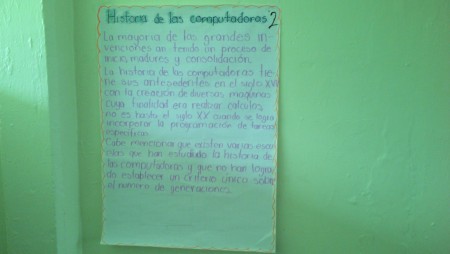 Historia de las computadoras 2
La mayoria de los grandes in-
venciones an tenido un proceso de
inicio, madures y consolidación.
La historia de las computadoras tie-
ne sus antecedentes en el siglo XVII
con la creación de diversas maquinas
cuya finalidad era realizar calculos,
no es hasta el siglo XX cuando se logra
incorporar la programación de tareas
especificas.
Cabe mencionar que existen varias escu-
elas que han estudiado la historia de
las computadoras y que no han logra-
do establecer un criterio único sobre
el numero de generaciones.